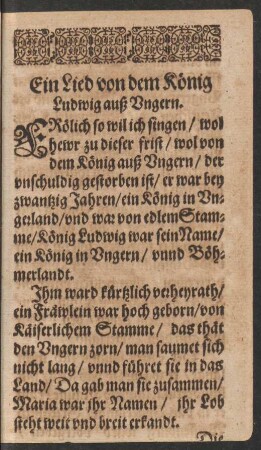 Ein Lied von dem König
Ludwig auß Vngern.
FRölich so wil ich singen / wol
hewr zu dieser frist / wol von
dem König auß Vngern / der
vnschuldig gestorben ist / er war bey
zwantzig Jahren / ein König in Vn-
gerland / vnd war von edlem Stam-
me / König Ludwig war sein Name /
ein König in Vngern / vnnd Böh-
merlandt.
Ihm ward kürtzlich verheyrath /
ein Fräwlein war hoch geborn / von
Käiserlichem Stamme / das thät
den Vngern zorn / man saumet sich
nicht lang / vnnd führet sie in das
Land / Da gab man sie zusammen /
Maria war jhr Namen / jhr Lob
steht weit vnd breit erkandt.
Die